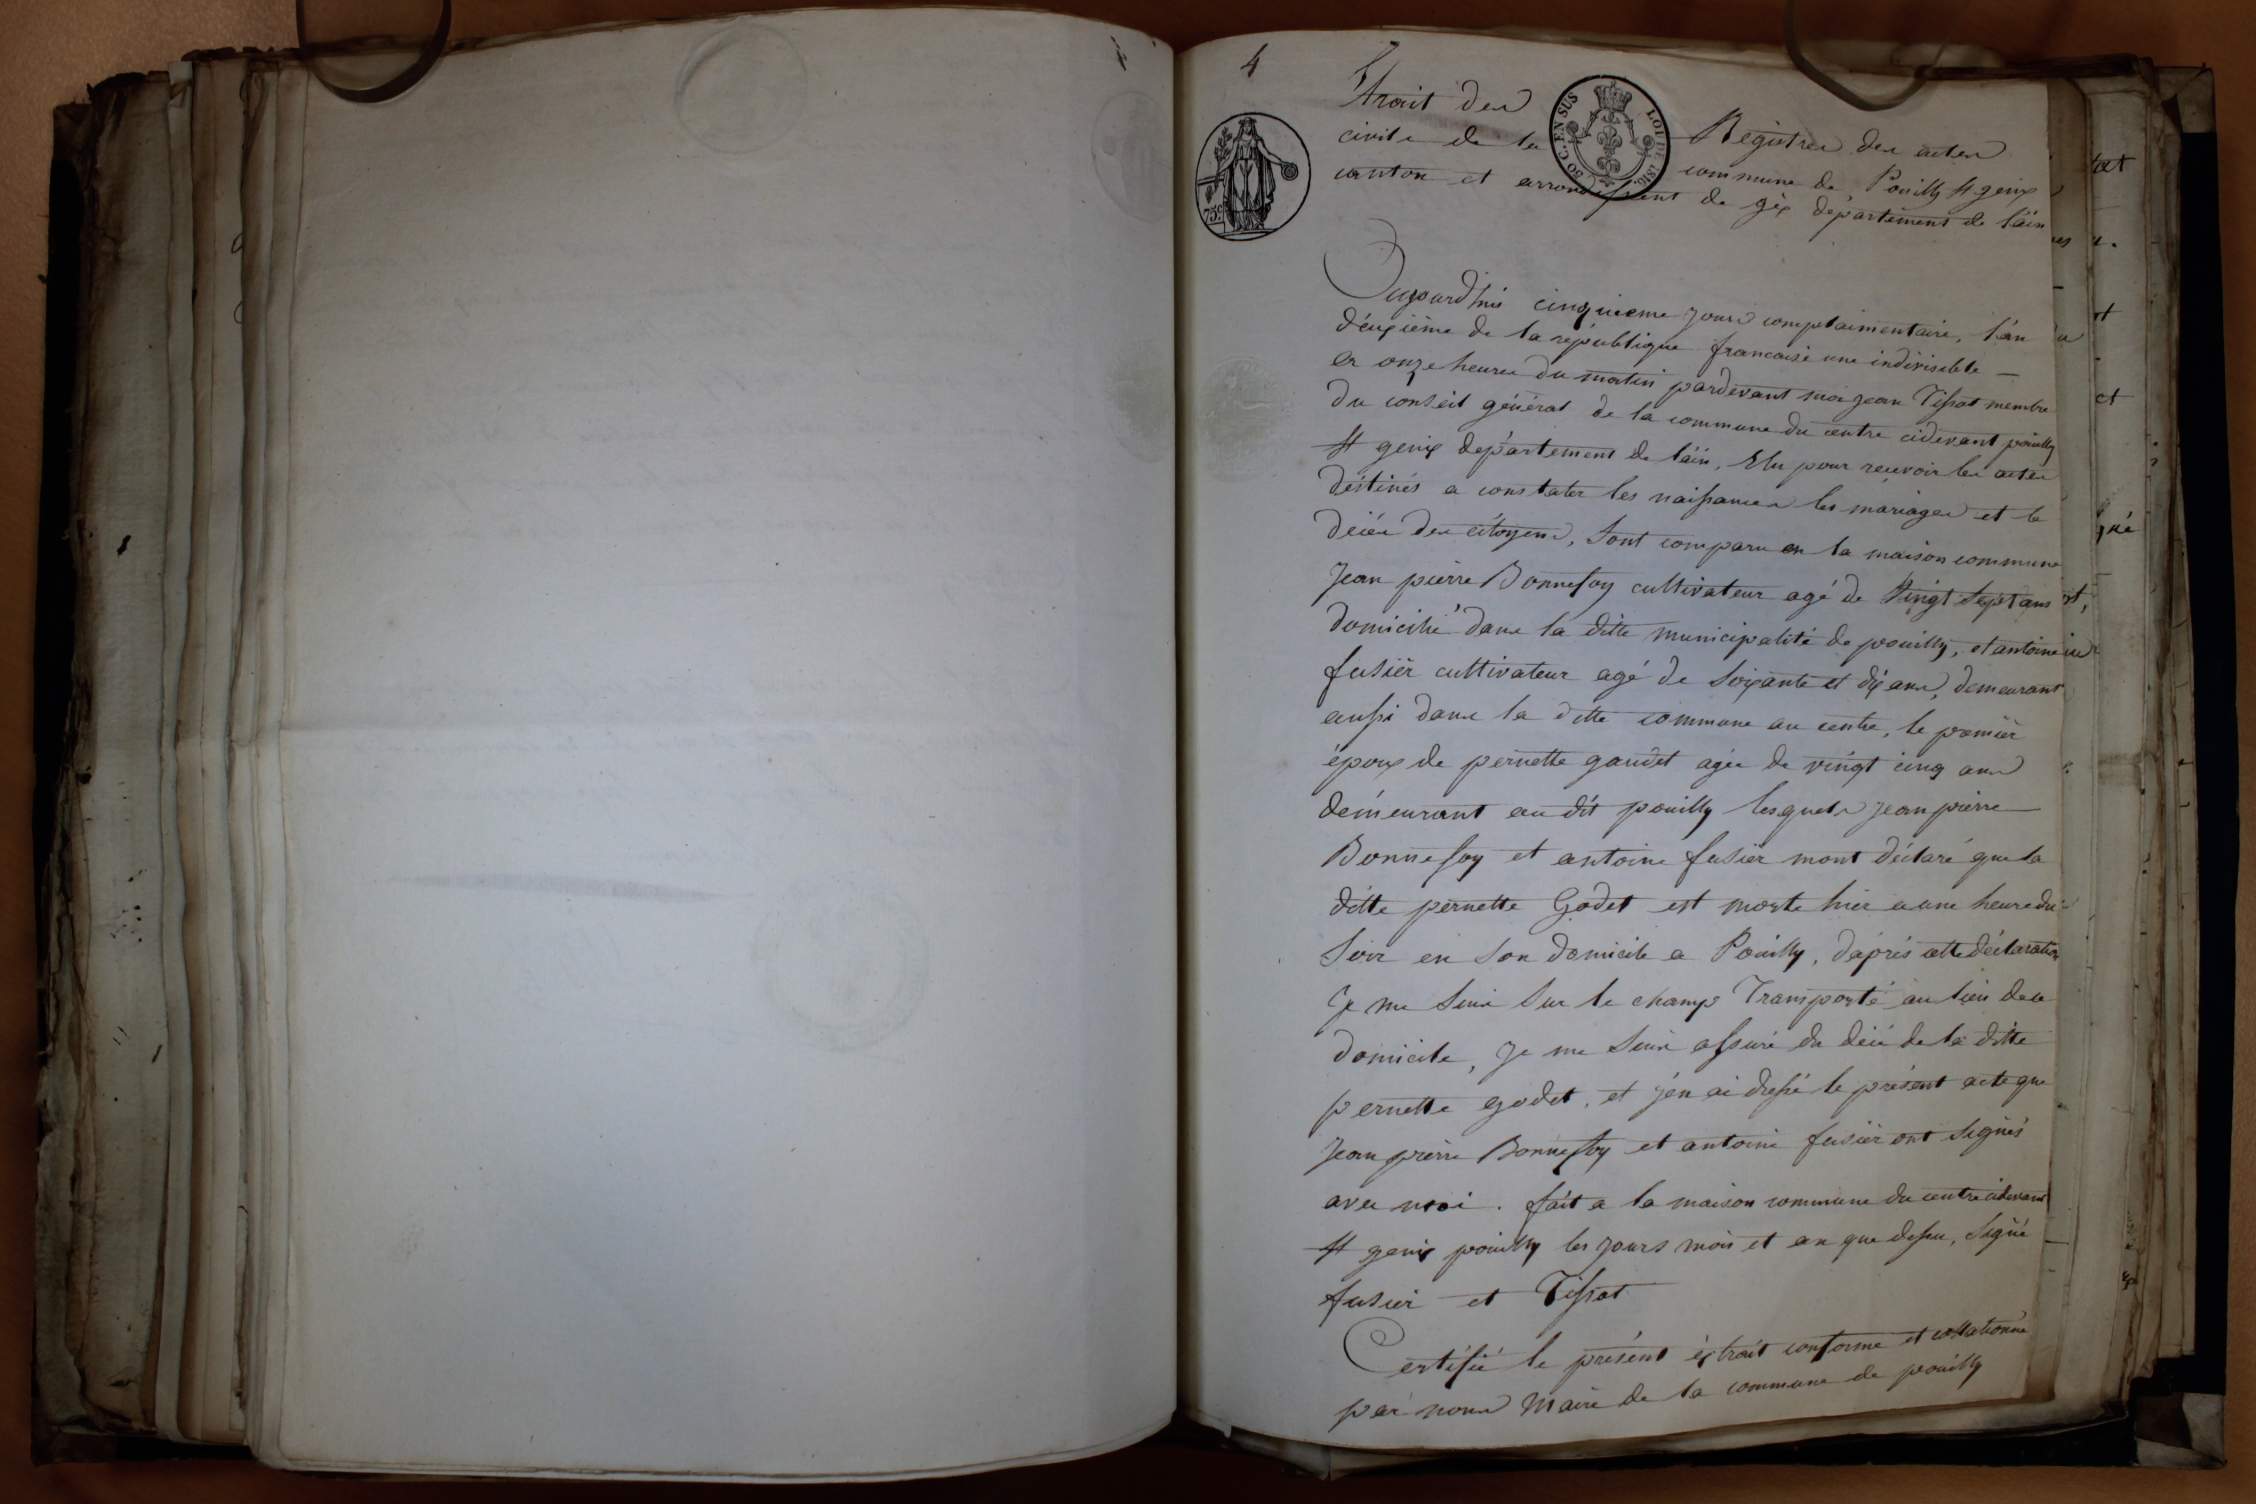 4
Extrait des Registres des actes
civils de la commune de Pouilly St genix
canton et arrondissement de gèx département de l'ain
50 C. EN SUS LOI DE 1816.
75c.
Aujourdhui cinquieme jours complaimentaire, l'an
deuxième de la république francaise une indivisible —
a onze heures du matin pardevant moi jean Tissot membre
du conseil général de la commune du centre cidevant pouilly
St genix département de l'ain, Elu pour recevoir les actes
déstinés a constater les naissances les mariages et le
décés des citoyens, Sont comparu en la maison commune
Jean pierre Bonnefoy cultivateur agé de Vingt Sept ans
domicilié dans la ditte municipalité de pouilly, et antoine
fusier cultivateur agé de Soixante et dix ans, demeurant
aussi dans la ditte commune au centre, le premier
époux de pernette gaudet agée de vingt cinq ans
demeurant au dit pouilly lesquels jean pierre
Bonnefoy et antoine fusier mont déclaré que la
ditte pernette Godet est morte hier a une heure du
Soir en Son domicile a Pouilly, daprès cette déclaration
Je me Suis Sur le champs Transporté au lieu de ce
domicile, Je me Suis assuré du décé de la ditte
pernette godet, et j'en ai dressé le présent acte que
Jean pierre Bonnefoy et antoine fusier ont Signés
avec moi. fait a la maison commune du centre cidevant
St genix pouilly les jours mois et an que dessu, Signé
fusier et Tissot
Certifié le présent éxtrait conforme et collationné
par nous Maire de la commune de pouilly